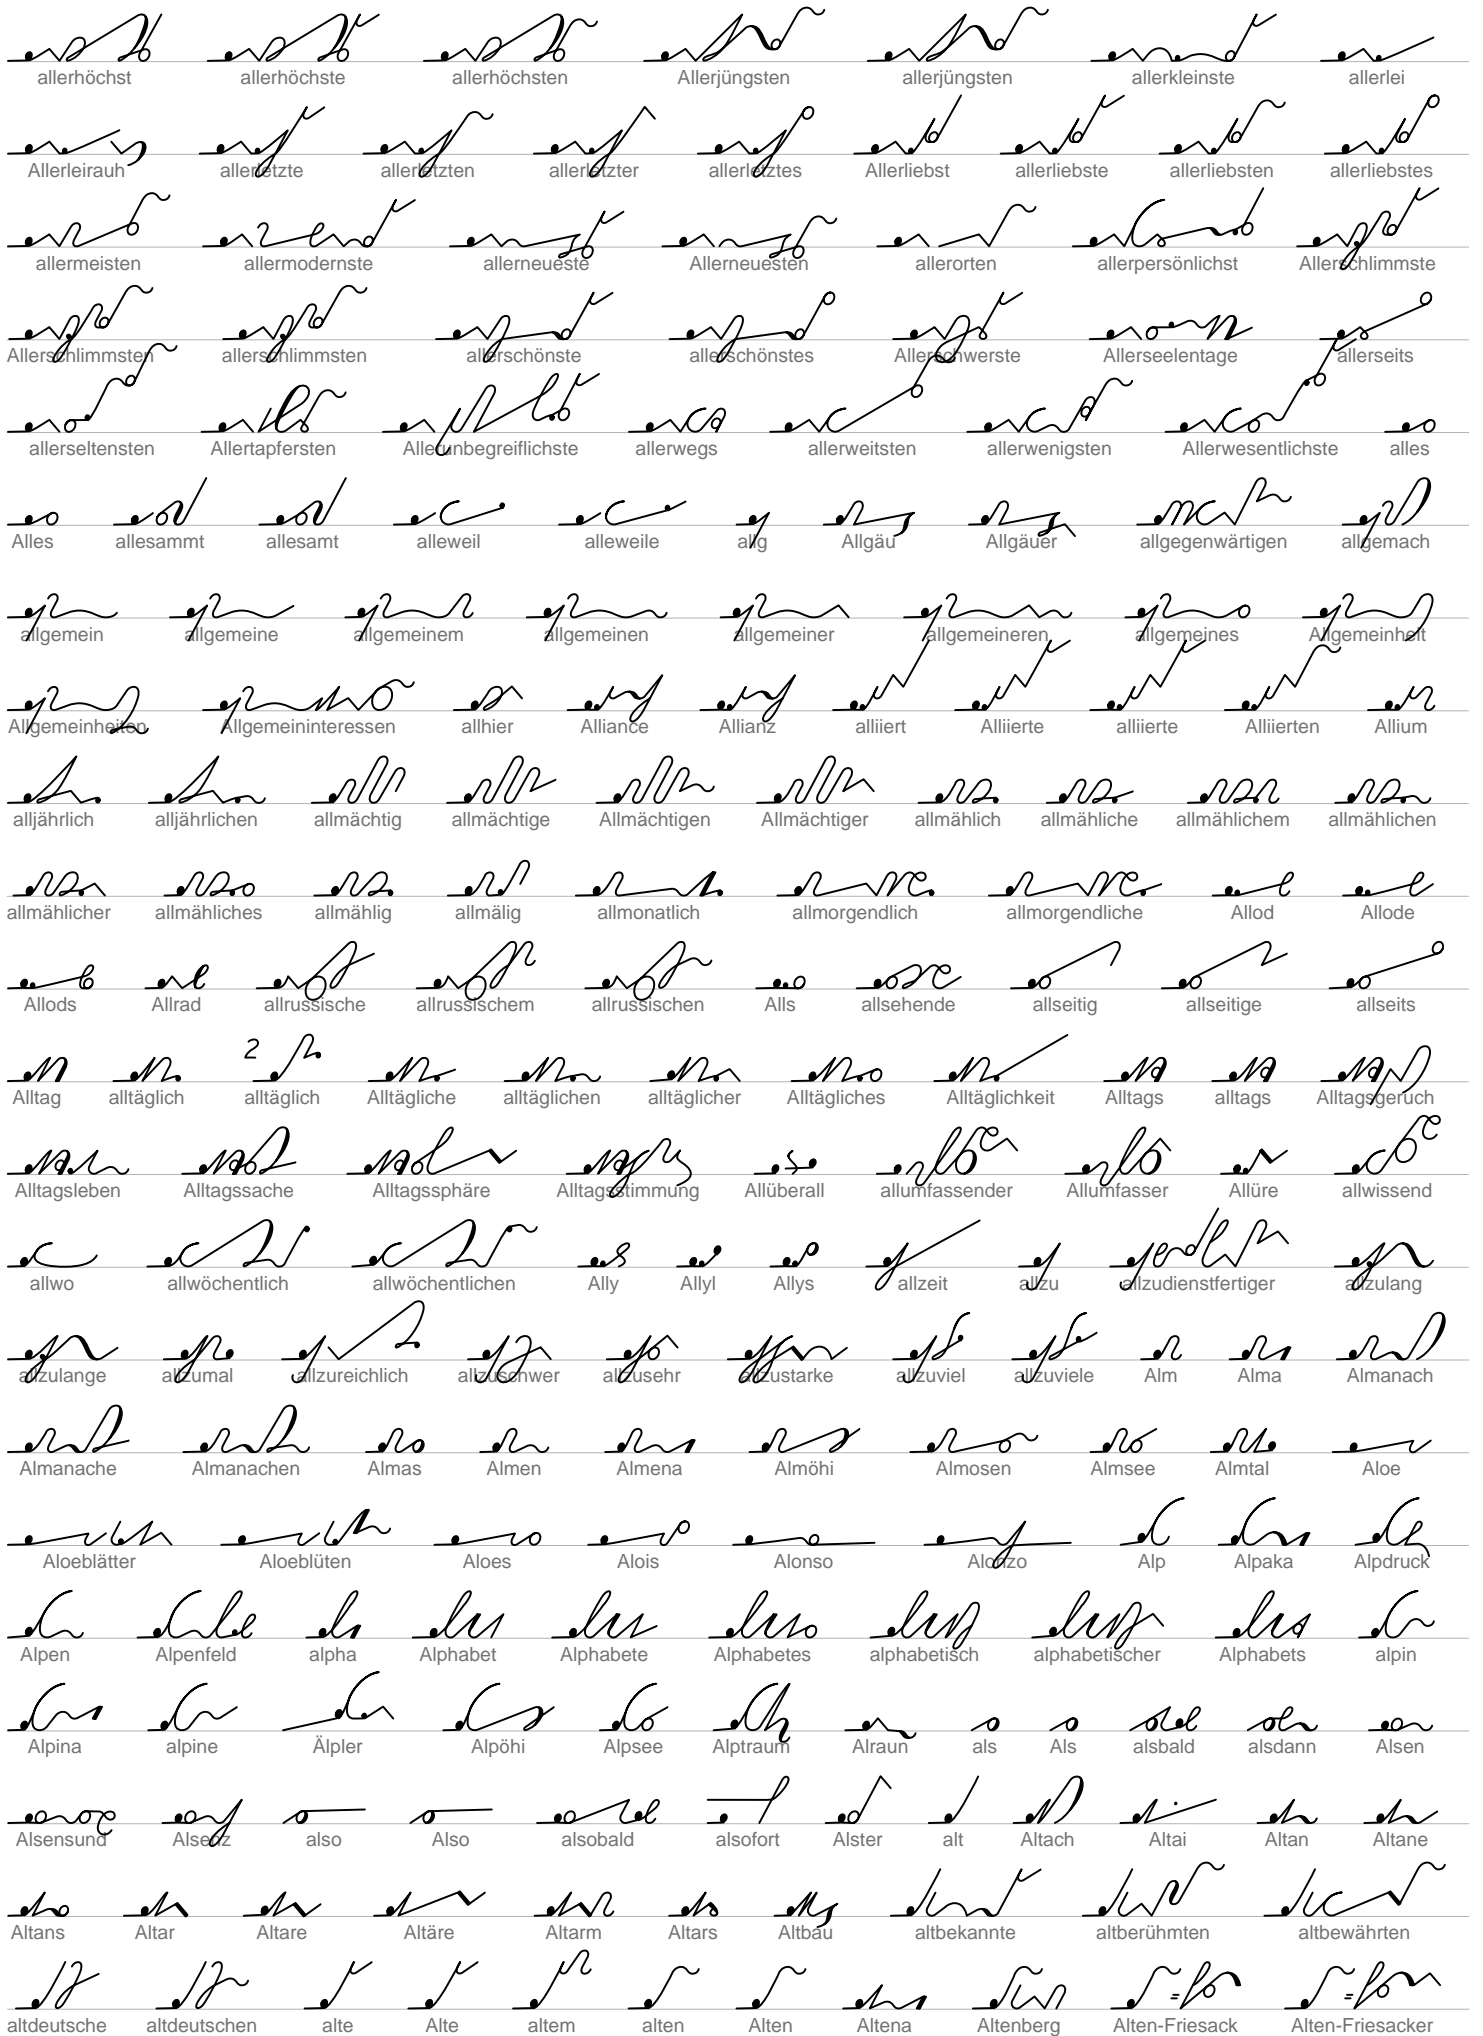 allerhöchst allerhöchste allerhöchsten Allerjüngsten allerjüngsten allerkleinste allerlei
Allerleirauh allerletzte allerletzten allerletzter allerletztes Allerliebst allerliebste allerliebsten allerliebstes
allermeisten allermodernste allerneueste Allerneuesten allerorten allerpersönlichst Allerschlimmste
Allerschlimmsten allerschlimmsten allerschönste allerschönstes Allerschwerste Allerseelentage allerseits
allerseltensten Allertapfersten Allerunbegreiflichste allerwegs allerweitsten allerwenigsten Allerwesentlichste alles
Alles allesammt allesamt alleweil alleweile allg Allgäu Allgäuer allgegenwärtigen allgemach
allgemein allgemeine allgemeinem allgemeinen allgemeiner allgemeineren allgemeines Allgemeinheit
Allgemeinheiten Allgemeininteressen allhier Alliance Allianz alliiert Alliierte alliierte Alliierten Allium
alljährlich alljährlichen allmächtig allmächtige Allmächtigen Allmächtiger allmählich allmähliche allmählichem allmählichen
allmählicher allmähliches allmählig allmälig allmonatlich allmorgendlich allmorgendliche Allod Allode
Allods Allrad allrussische allrussischem allrussischen Alls allsehende allseitig allseitige allseits
2
Alltag alltäglich alltäglich Alltägliche alltäglichen alltäglicher Alltägliches Alltäglichkeit Alltags alltags Alltagsgeruch
Alltagsleben Alltagssache Alltagssphäre Alltagsstimmung Allüberall allumfassender Allumfasser Allüre allwissend
allwo allwöchentlich allwöchentlichen Ally Allyl Allys allzeit allzu allzudienstfertiger allzulang
allzulange allzumal allzureichlich allzuschwer allzusehr allzustarke allzuviel allzuviele Alm Alma Almanach
Almanache Almanachen Almas Almen Almena Almöhi Almosen Almsee Almtal Aloe
Aloeblätter Aloeblüten Aloes Alois Alonso Alonzo Alp Alpaka Alpdruck
Alpen Alpenfeld alpha Alphabet Alphabete Alphabetes alphabetisch alphabetischer Alphabets alpin
Alpina alpine Älpler Alpöhi Alpsee Alptraum Alraun als Als alsbald alsdann Alsen
Alsensund Alsenz also Also alsobald alsofort Alster alt Altach Altai Altan Altane
Altans Altar Altare Altäre Altarm Altars Altbau altbekannte altberühmten altbewährten
altdeutsche altdeutschen alte Alte altem alten Alten Altena Altenberg Alten-Friesack Alten-Friesacker